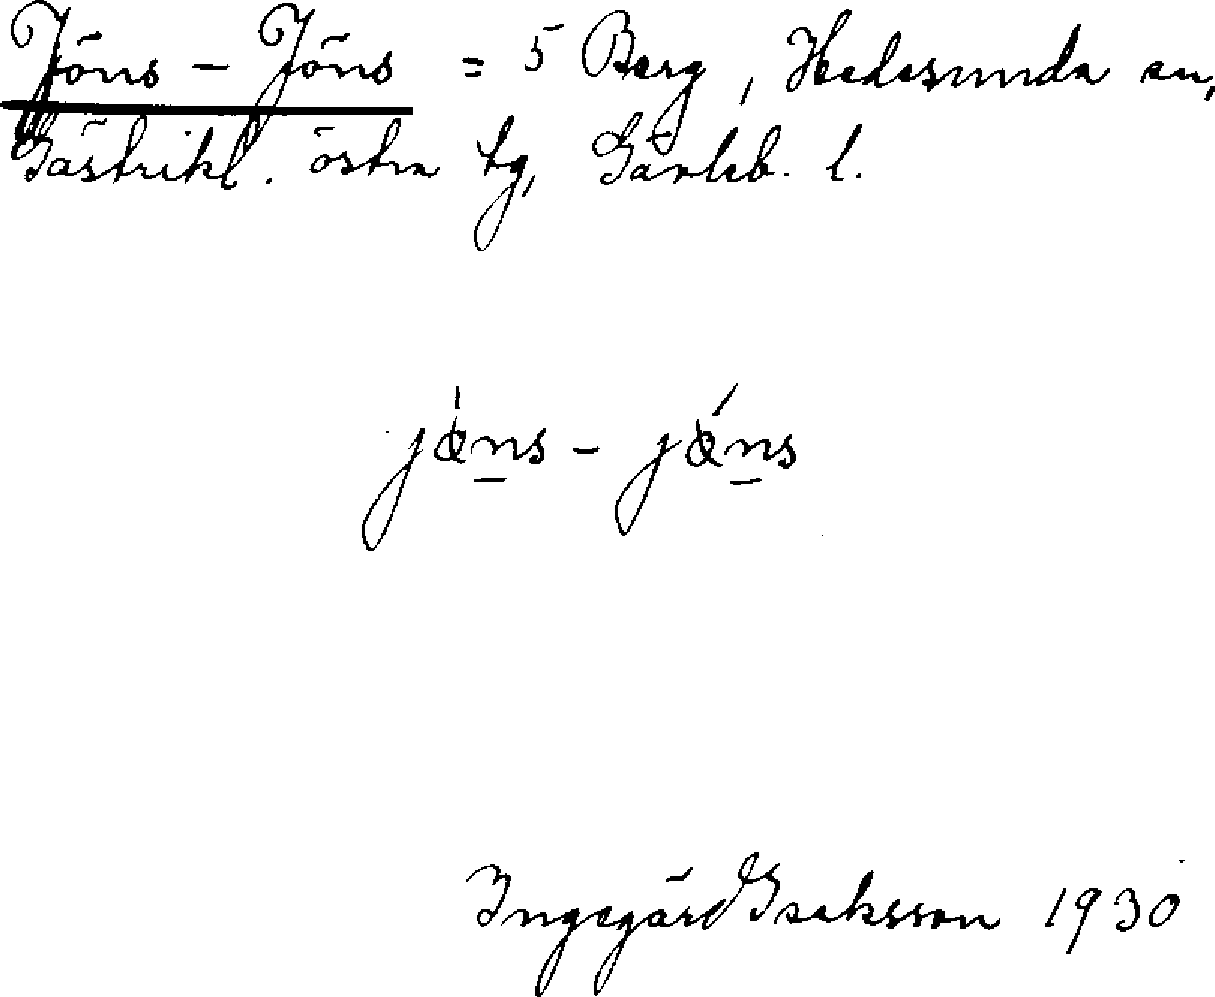 Jöns - Jöns = 5 Berg, Hedesunda sn,
Gästrikl. östra tg, Gävleb. l.
Ingegärd Isaksson 1930